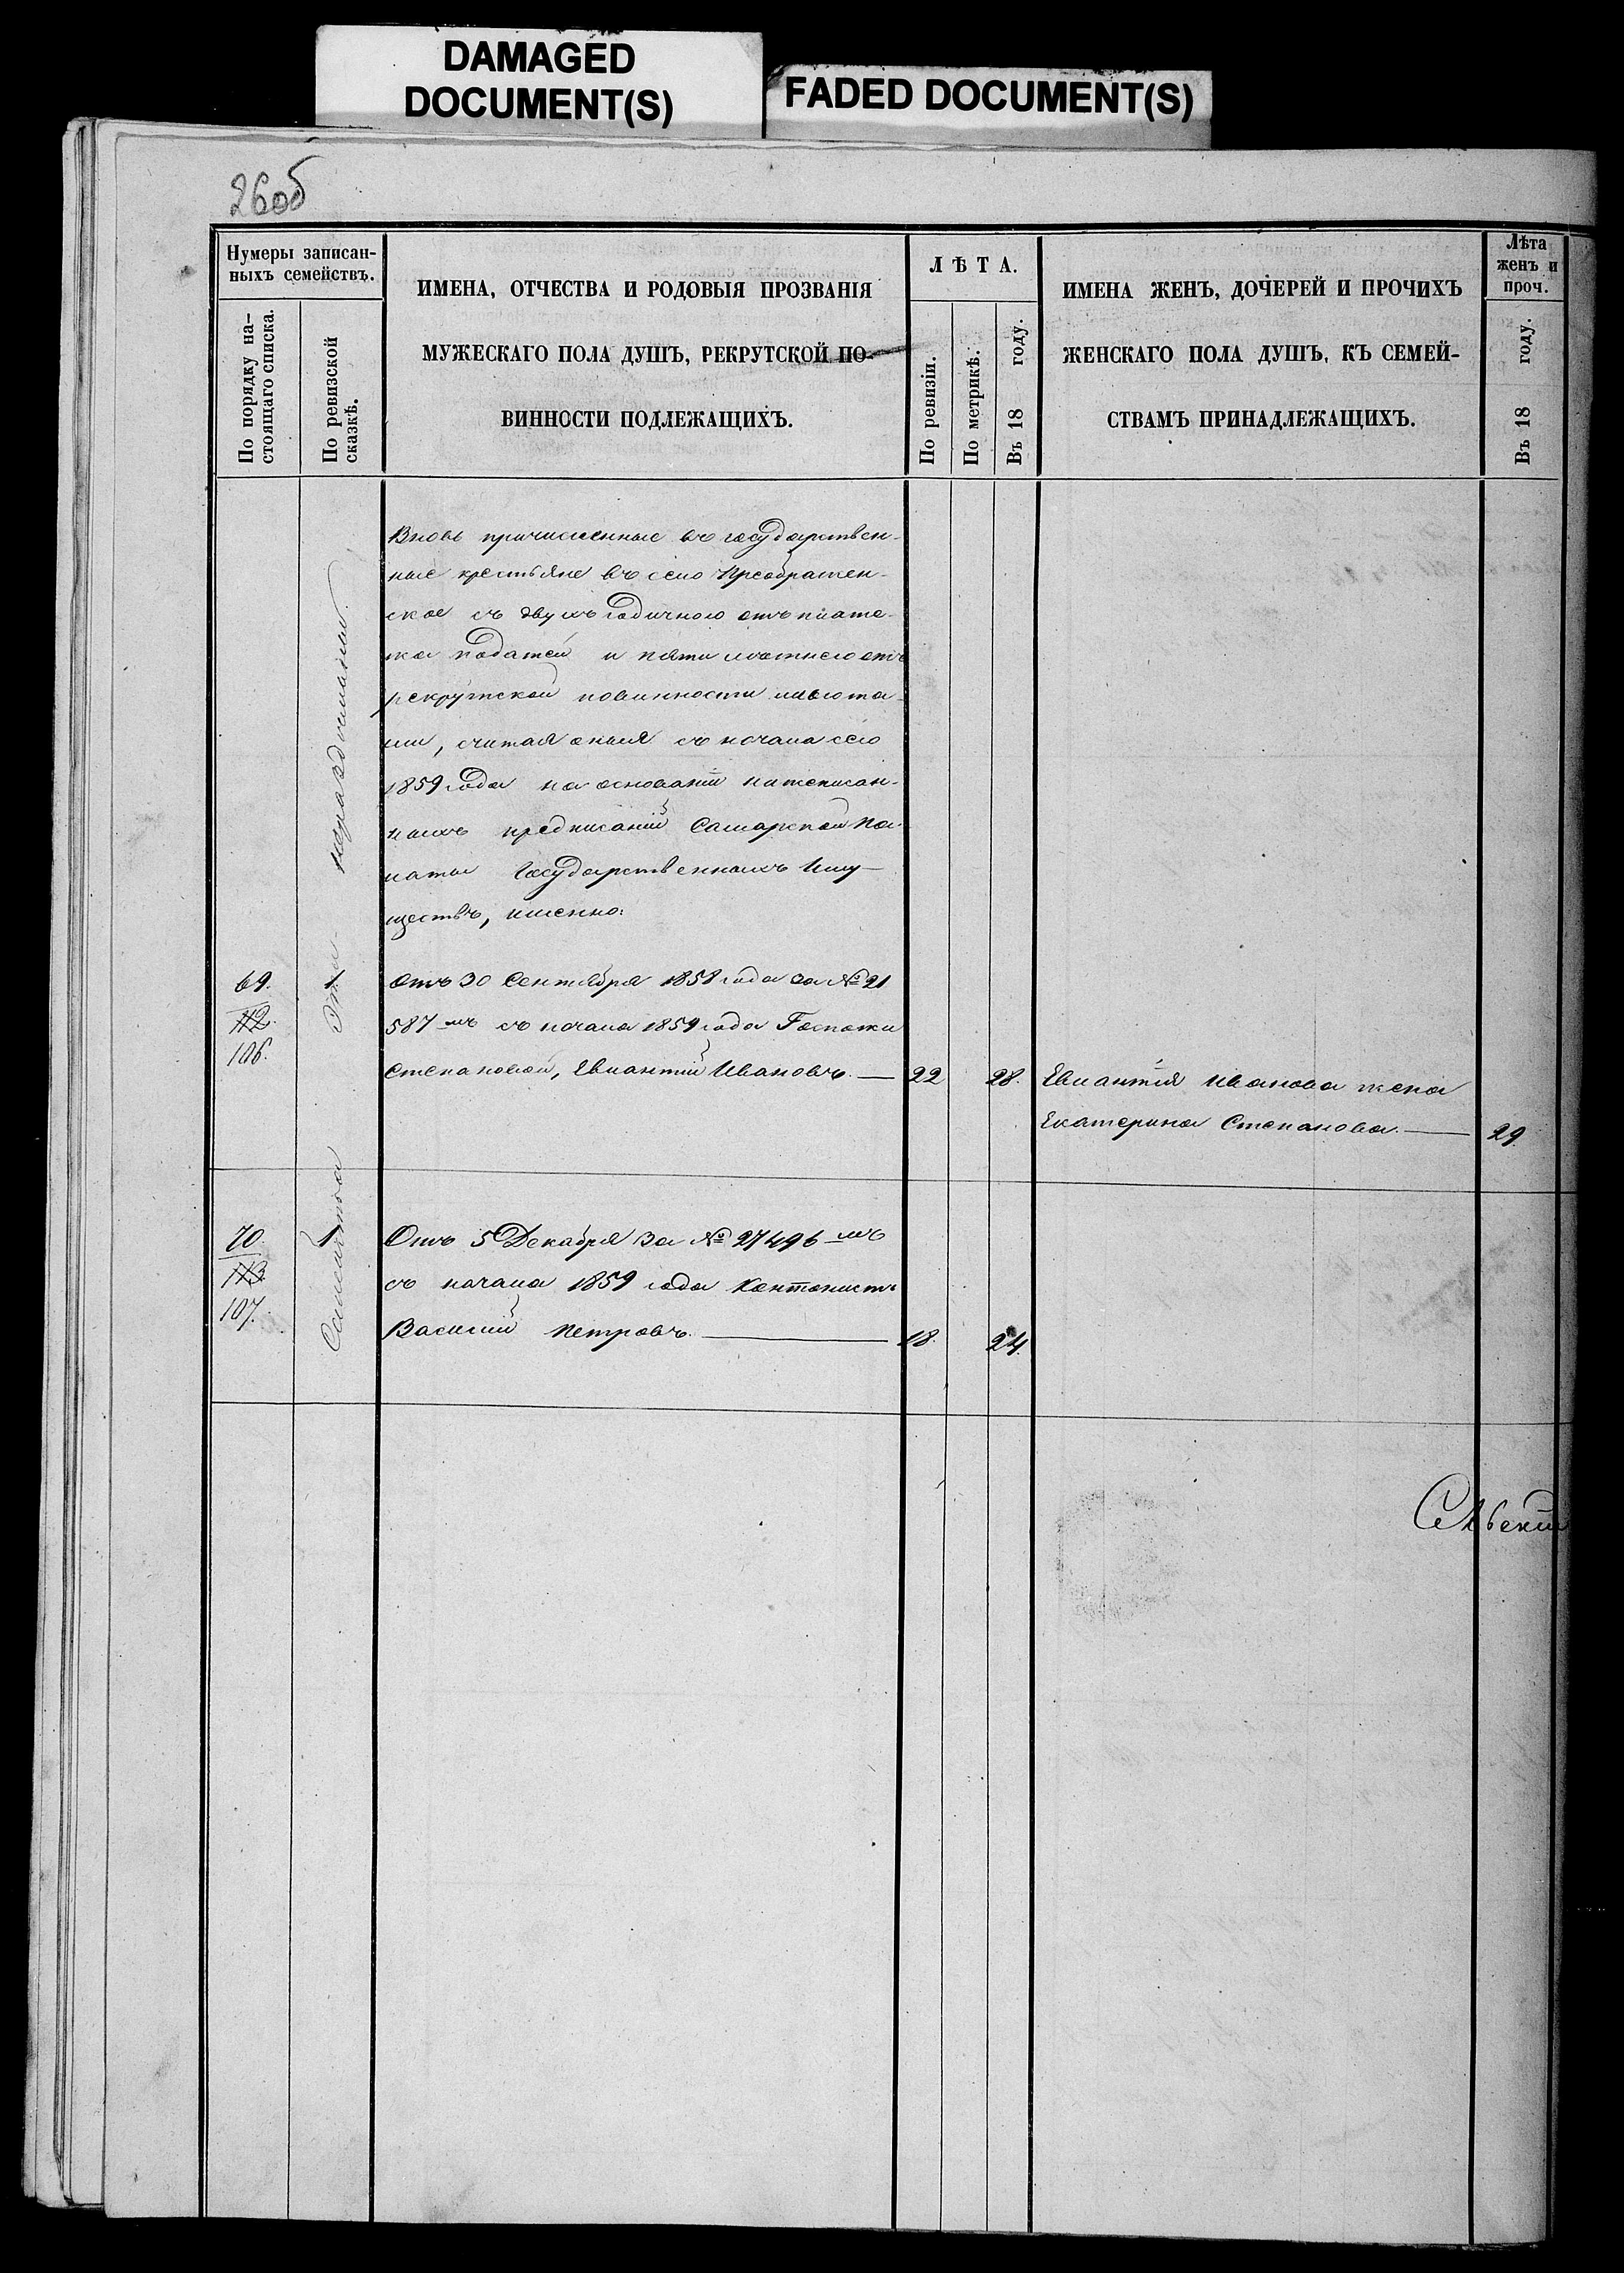 DAMAGED
DOCUMENT(S)
FADED DOCUMENT(S)
26об
Нумеры записан-
ныхъ семействъ.
По порядку на-
стоящаго списка.
По ревизской
сказкѣ.
ИМЕНА, ОТЧЕСТВА И РОДОВЫЯ ПРОЗВАНІЯ
МУЖЕСКАГО ПОЛА ДУШЪ, РЕКРУТСКОЙ ПО-
ВИННОСТИ ПОДЛЕЖАЩИХЪ.
ЛѢТА.
По ревизіи.
По метрикѣ.
Въ 18 году.
ИМЕНА ЖЕНЪ, ДОЧЕРЕЙ И ПРОЧИХЪ
ЖЕНСКАГО ПОЛА ДУШЪ, КЪ СЕМЕЙ-
СТВАМЪ ПРИНАДЛЕЖАЩИХЪ.
Лѣта
женъ и
проч.
Въ 18 году.
Вновь причисленные въ государствен-
ные крестьяне въ село Преображен-
ское съ двухъ годичною отъ плате-
жа податей и пяти летнею отъ
рекрутской повинности льгота-
ми, считая оныя съ начала сего
1859 года на основаніи нижеписан-
ныхъ предписаній Самарской Па-
латы Государственныхъ Иму-
ществъ, именно:
69.
112.
106.
1.
Отъ 30 Сентября 1858 года за № 21
587 мъ съ начала 1859 года Госпожи
Степановой, Евлантій Ивановъ. — 22 28.
Евлантія Иванова жена
Екатерина Степанова. — 29
70.
113.
107.
1.
Отъ 5 Декабря за № 27496 мъ
съ начала 1859 года Кантонистъ
Василій Петровъ. — 18. 24.
Эти
Семейства
Сельскій